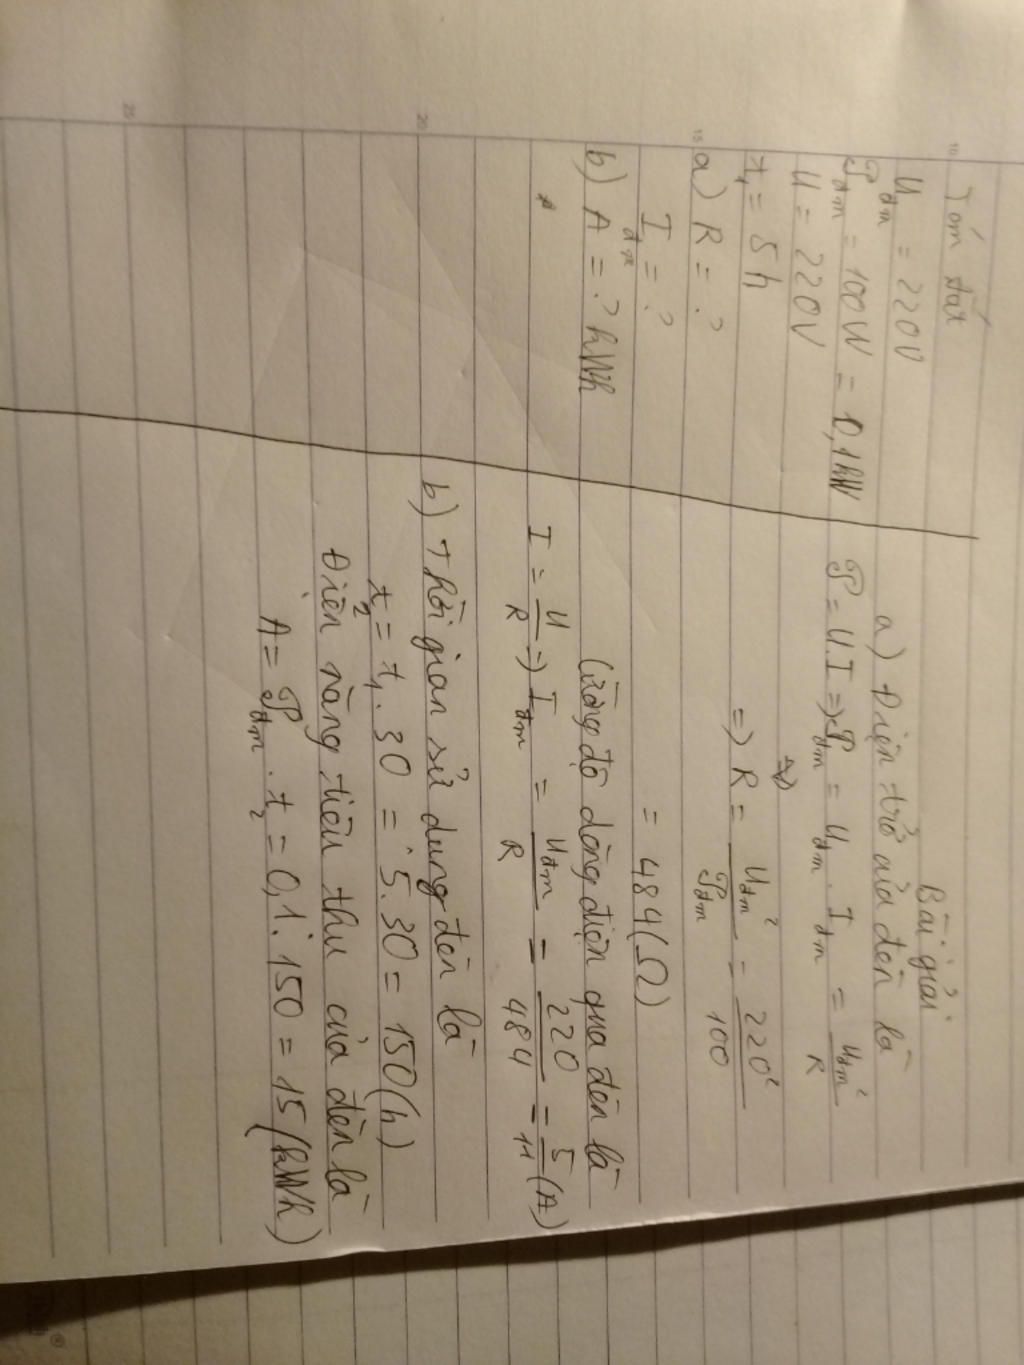 Tóm tắt
Uđm = 220V
Pđm = 100W = 0,1kW
U = 220V
t₁ = 5h
a) R = ?
Iđm = ?
b) A = ? kWh
Bài giải
a) Điện trở của đèn là
P = U.I => Pđm = Uđm . Iđm = Uđm²/R
=> R = Uđm²/Pđm = 220²/100
= 484(Ω)
Cường độ dòng điện qua đèn là
I = U/R => Iđm = Uđm/R = 220/484 = 5/11 (A)
b) Thời gian sử dụng đèn là
t₂ = t₁ . 30 = 5.30 = 150(h)
Điện năng tiêu thụ của đèn là
A = Pđm . t₂ = 0,1 . 150 = 15 (kWh)
10
15
20
25